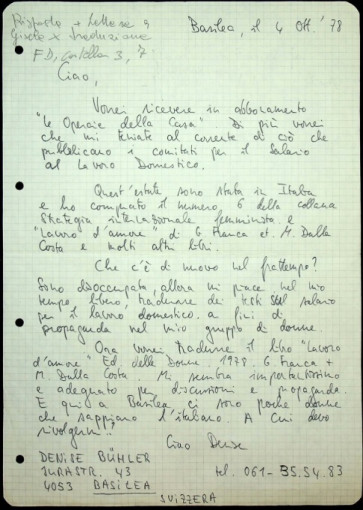 Risposta + Lettera a
Gisela x traduzione
FD, Cartella 3, 7.
Basilea, il 4 Ott. '78
Ciao,
Vorrei ricevere in abbonamento
"Le Operaie della Casa". Di più vorrei
che mi teniate al corrente di ciò che
pubblicano i comitati per il Salario
al Lavoro Domestico.
Quest'estate sono stata in Italia
e ho comprato il numero 6 della collana
Strategia internazionale femminista e
"Lavoro d'amore" di G. Franca et. M. Dalla
Costa e molti altri libri.
Che c'è di nuovo nel frattempo?
Sono disoccupata, allora mi piace nel mio
tempo libero, tradurre dei testi sul salario
per il lavoro domestico a fini di
propaganda nel mio gruppo di donne.
Ora vorrei tradurre il libro "Lavoro
d'amore" Ed. delle Donne. 1978. G. Franca +
M. Dalla Costa. Mi sembra importantissimo
e adeguato per discussioni e propaganda.
E qui a Basilea ci sono poche donne
che sappiano l'italiano. A Cui devo
rivolgermi?
Ciao Denise
DENISE BÜHLER
JURASTR. 43
4053 BASILEA
SVIZZERA
tel. 061-35.54.83